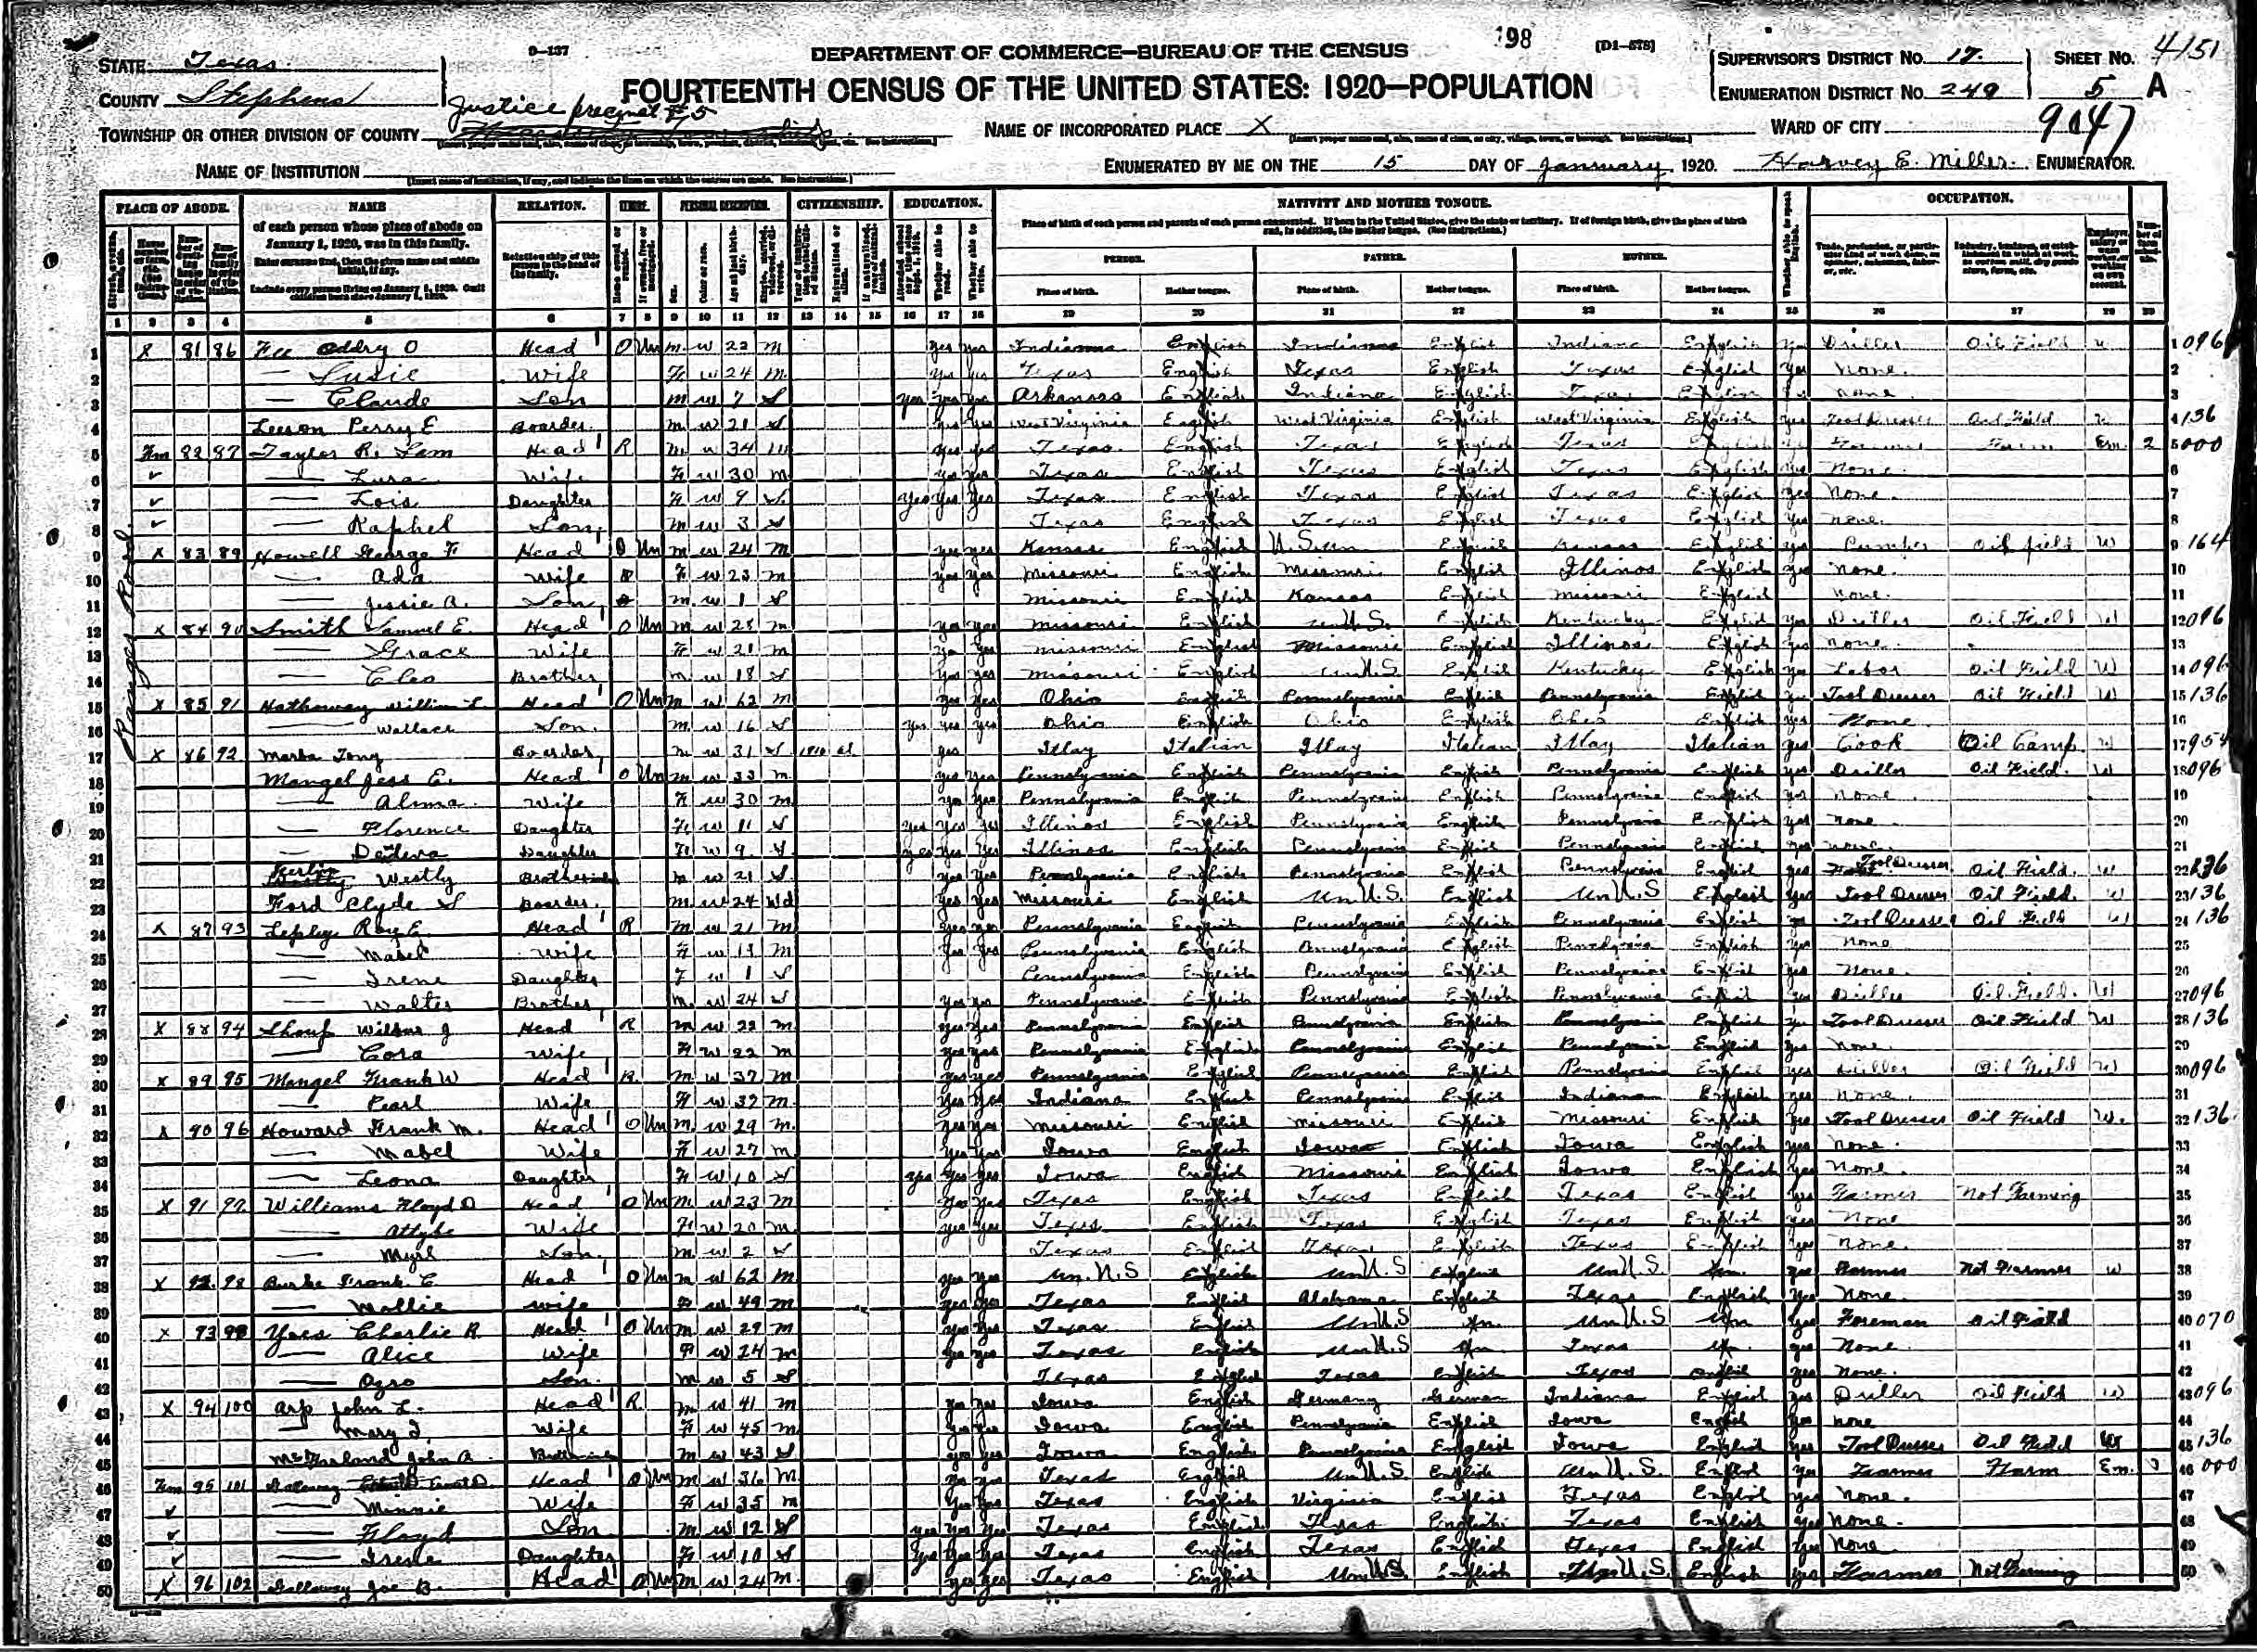 4151
9-137
198
[D1-578]
STATE Texas
DEPARTMENT OF COMMERCE—BUREAU OF THE CENSUS
SUPERVISOR'S DISTRICT NO. 17.
SHEET NO.
COUNTY Stephens
FOURTEENTH CENSUS OF THE UNITED STATES: 1920—POPULATION
ENUMERATION DISTRICT NO. 249
5 A
Justice precinct #5
TOWNSHIP OR OTHER DIVISION OF COUNTY
NAME OF INCORPORATED PLACE X
WARD OF CITY
9047
NAME OF INSTITUTION
ENUMERATED BY ME ON THE 15 DAY OF January, 1920. Harvey E. Miller. ENUMERATOR.
PLACE OF ABODE. NAME RELATION. CITIZENSHIP. EDUCATION. NATIVITY AND MOTHER TONGUE. OCCUPATION.
of each person whose place of abode on January 1, 1920, was in this family.
Relationship of this person to the head of the family.
PERSON. FATHER. MOTHER.
Place of birth. Mother tongue. Place of birth. Mother tongue. Place of birth. Mother tongue.
1 2 3 4 5 6 7 8 9 10 11 12 13 14 15 16 17 18 19 20 21 22 23 24 25 26 27 28 29
Ranger Road
1 X 81 86 Addry O Head O Un M W 22 M yes yes Indiana English Indiana English Indiana English yes Driller Oil Field 096
2 Susie Wife F W 24 M yes yes Texas English Texas English Texas English yes None.
3 Claude Son M W 7 S yes yes yes Arkansas English Indiana English Texas English None
4 Leeson Perry E Boarder M W 21 S yes yes West Virginia English West Virginia English West Virginia English yes Tool Dresser Oil Field 136
5 Fm 82 87 Taylor R. Sam Head R M W 34 M yes yes Texas English Texas English Texas English Farmer Farm Em 2 000
6 Lura Wife F W 30 M yes yes Texas English Texas English Texas English yes None.
7 Lois Daughter F W 9 S yes yes yes Texas English Texas English Texas English yes None.
8 Raphel Son M W 3 S Texas English Texas English Texas English yes None.
9 X 83 89 Howell George F Head O Un M W 24 M yes yes Kansas English U.S. un English Kansas English yes Pumper Oil field W 164
10 Ada Wife F W 23 M yes yes Missouri English Missouri English Illinos English yes None.
11 Jessie A. Son M W 1 S Missouri English Kansas English Missouri English None.
12 X 84 90 Smith Samuel E. Head O Un M W 28 M yes yes Missouri English un U.S. English Kentucky English yes Driller Oil Field W 096
13 Grace Wife F W 21 M yes yes Missouri English Missouri English Illinois English yes None.
14 Cleo Brother M W 18 S yes yes Missouri English un U.S. English Kentucky English yes Labor Oil Field W 096
15 X 85 91 Hathaway William L Head O Un M W 62 M yes yes Ohio English Pennsylvania English Pennsylvania English yes Tool Dresser Oil Field W 136
16 Wallace Son. M W 16 S yes yes yes Ohio English Ohio English Ohio English yes None
17 X 86 92 Marba Tony Boarder M W 31 S 1910 al yes Itlay Italian Itlay Italian Itlay Italian yes Cook Oil Camp. W 954
18 Mangel Jess E. Head O Un M W 33 M yes yes Pennsylvania English Pennsylvania English Pennsylvania English yes Driller Oil Field. W 096
19 Alma Wife F W 30 M yes yes Pennsylvania English Pennsylvania English Pennsylvania English yes None
20 Florence Daughter F W 11 S yes yes yes Illinois English Pennsylvania English Pennsylvania English yes None
21 Daughter F W 9 S yes yes yes Illinois English Pennsylvania English Pennsylvania English yes None.
22 Westly Brotherinlaw M W 21 S yes yes Pennsylvania English Pennsylvania English Pennsylvania English yes Tool Dresser Oil Field. W 136
23 Ford Clyde S Boarder. M W 24 Wd yes yes Missouri English Un U.S. English Un U.S English yes Tool Dresser Oil Field. W 136
24 X 87 93 Lepley Roy E. Head R M W 21 M yes yes Pennsylvania English Pennsylvania English Pennsylvania English yes Tool Dresser Oil Field W 136
25 Mabel Wife F W M yes yes Pennsylvania English Pennsylvania English Pennsylvania English yes None
26 Irene Daughter F W 1 S Pennsylvania English Pennsylvania English Pennsylvania English yes None.
27 Walter Brother M W 24 S yes yes Pennsylvania English Pennsylvania English Pennsylvania English yes Driller Oil Field. W 096
28 X 88 94 Shoup Wilbur J Head R M W 22 M yes yes Pennsylvania English Pennsylvania English Pennsylvania English yes Tool Dresser Oil Field W 136
29 Cora Wife F W 22 M yes yes Pennsylvania English Pennsylvania English Pennsylvania English yes None.
30 X 89 95 Mangel Frank W Head R. M W 37 M yes yes Pennsylvania English Pennsylvania English Pennsylvania English yes Driller Oil Field W 096
31 Pearl Wife F W 37 M yes yes Indiana English Pennsylvania English Indiana English yes None.
32 X 90 96 Howard Frank M. Head O Un M W 29 M yes yes Missouri English Missouri English Missouri English yes Tool Dresser Oil Field W. 136
33 Mabel Wife F W 27 M yes yes Iowa English Iowa English Iowa English yes None.
34 Leona Daughter F W 10 S yes yes yes Iowa English Missouri English Iowa English yes None.
35 X 91 97 Williams Floyd D Head O Un M W 23 M yes yes Texas English Texas English Texas English yes Farmer Not Farming
36 Wife F W 20 M yes yes Texas English Texas English Texas English yes None
37 Myrl Son M W 2 S Texas English Texas English Texas English yes None.
38 X 92 98 Burke Frank E Head O Un M W 62 M yes yes Un. U.S English un U.S English Un U.S. Un. yes Farmer Not Farmer W
39 Mollie Wife F W 49 M yes yes Texas English Alabama English Texas English yes None.
40 X 93 99 Yoes Charlie R. Head O Un M W 29 M yes yes Texas English Un U.S Un. Un U.S Un yes Foreman Oil Field 070
41 Alice Wife F W 24 M yes yes Texas English Un U.S Un Texas Un. yes None.
42 Ozro Son. M W 5 S Texas English Texas English Texas English yes None.
43 X 94 100 Arp John L. Head R M W 41 M yes yes Iowa English Germany German Indiana English yes Driller Oil Field W 096
44 Mary J. Wife F W 45 M yes yes Iowa English Pennsylvania English Iowa English yes None
45 McFarland John A. Brotherinlaw M W 43 S yes yes Iowa English Pennsylvania English Iowa English yes Tool Dresser Oil Field W 136
46 Fm 95 101 Galloway Ernest D. Head O Un M W 36 M yes yes Texas English Un U.S English Un U.S. English yes Farmer Farm Em. 3 000
47 Minnie Wife F W 35 M yes yes Texas English Virginia English Texas English yes None.
48 Floyd Son M W 12 S yes yes yes Texas English Texas English Texas English yes None.
49 Irene Daughter F W 10 S yes yes yes Texas English Texas English Texas English yes None
50 X 96 102 Galloway Joe B. Head O Un M W 24 M. yes yes Texas English Un U.S. English U.S. English yes Farmer Not Farming